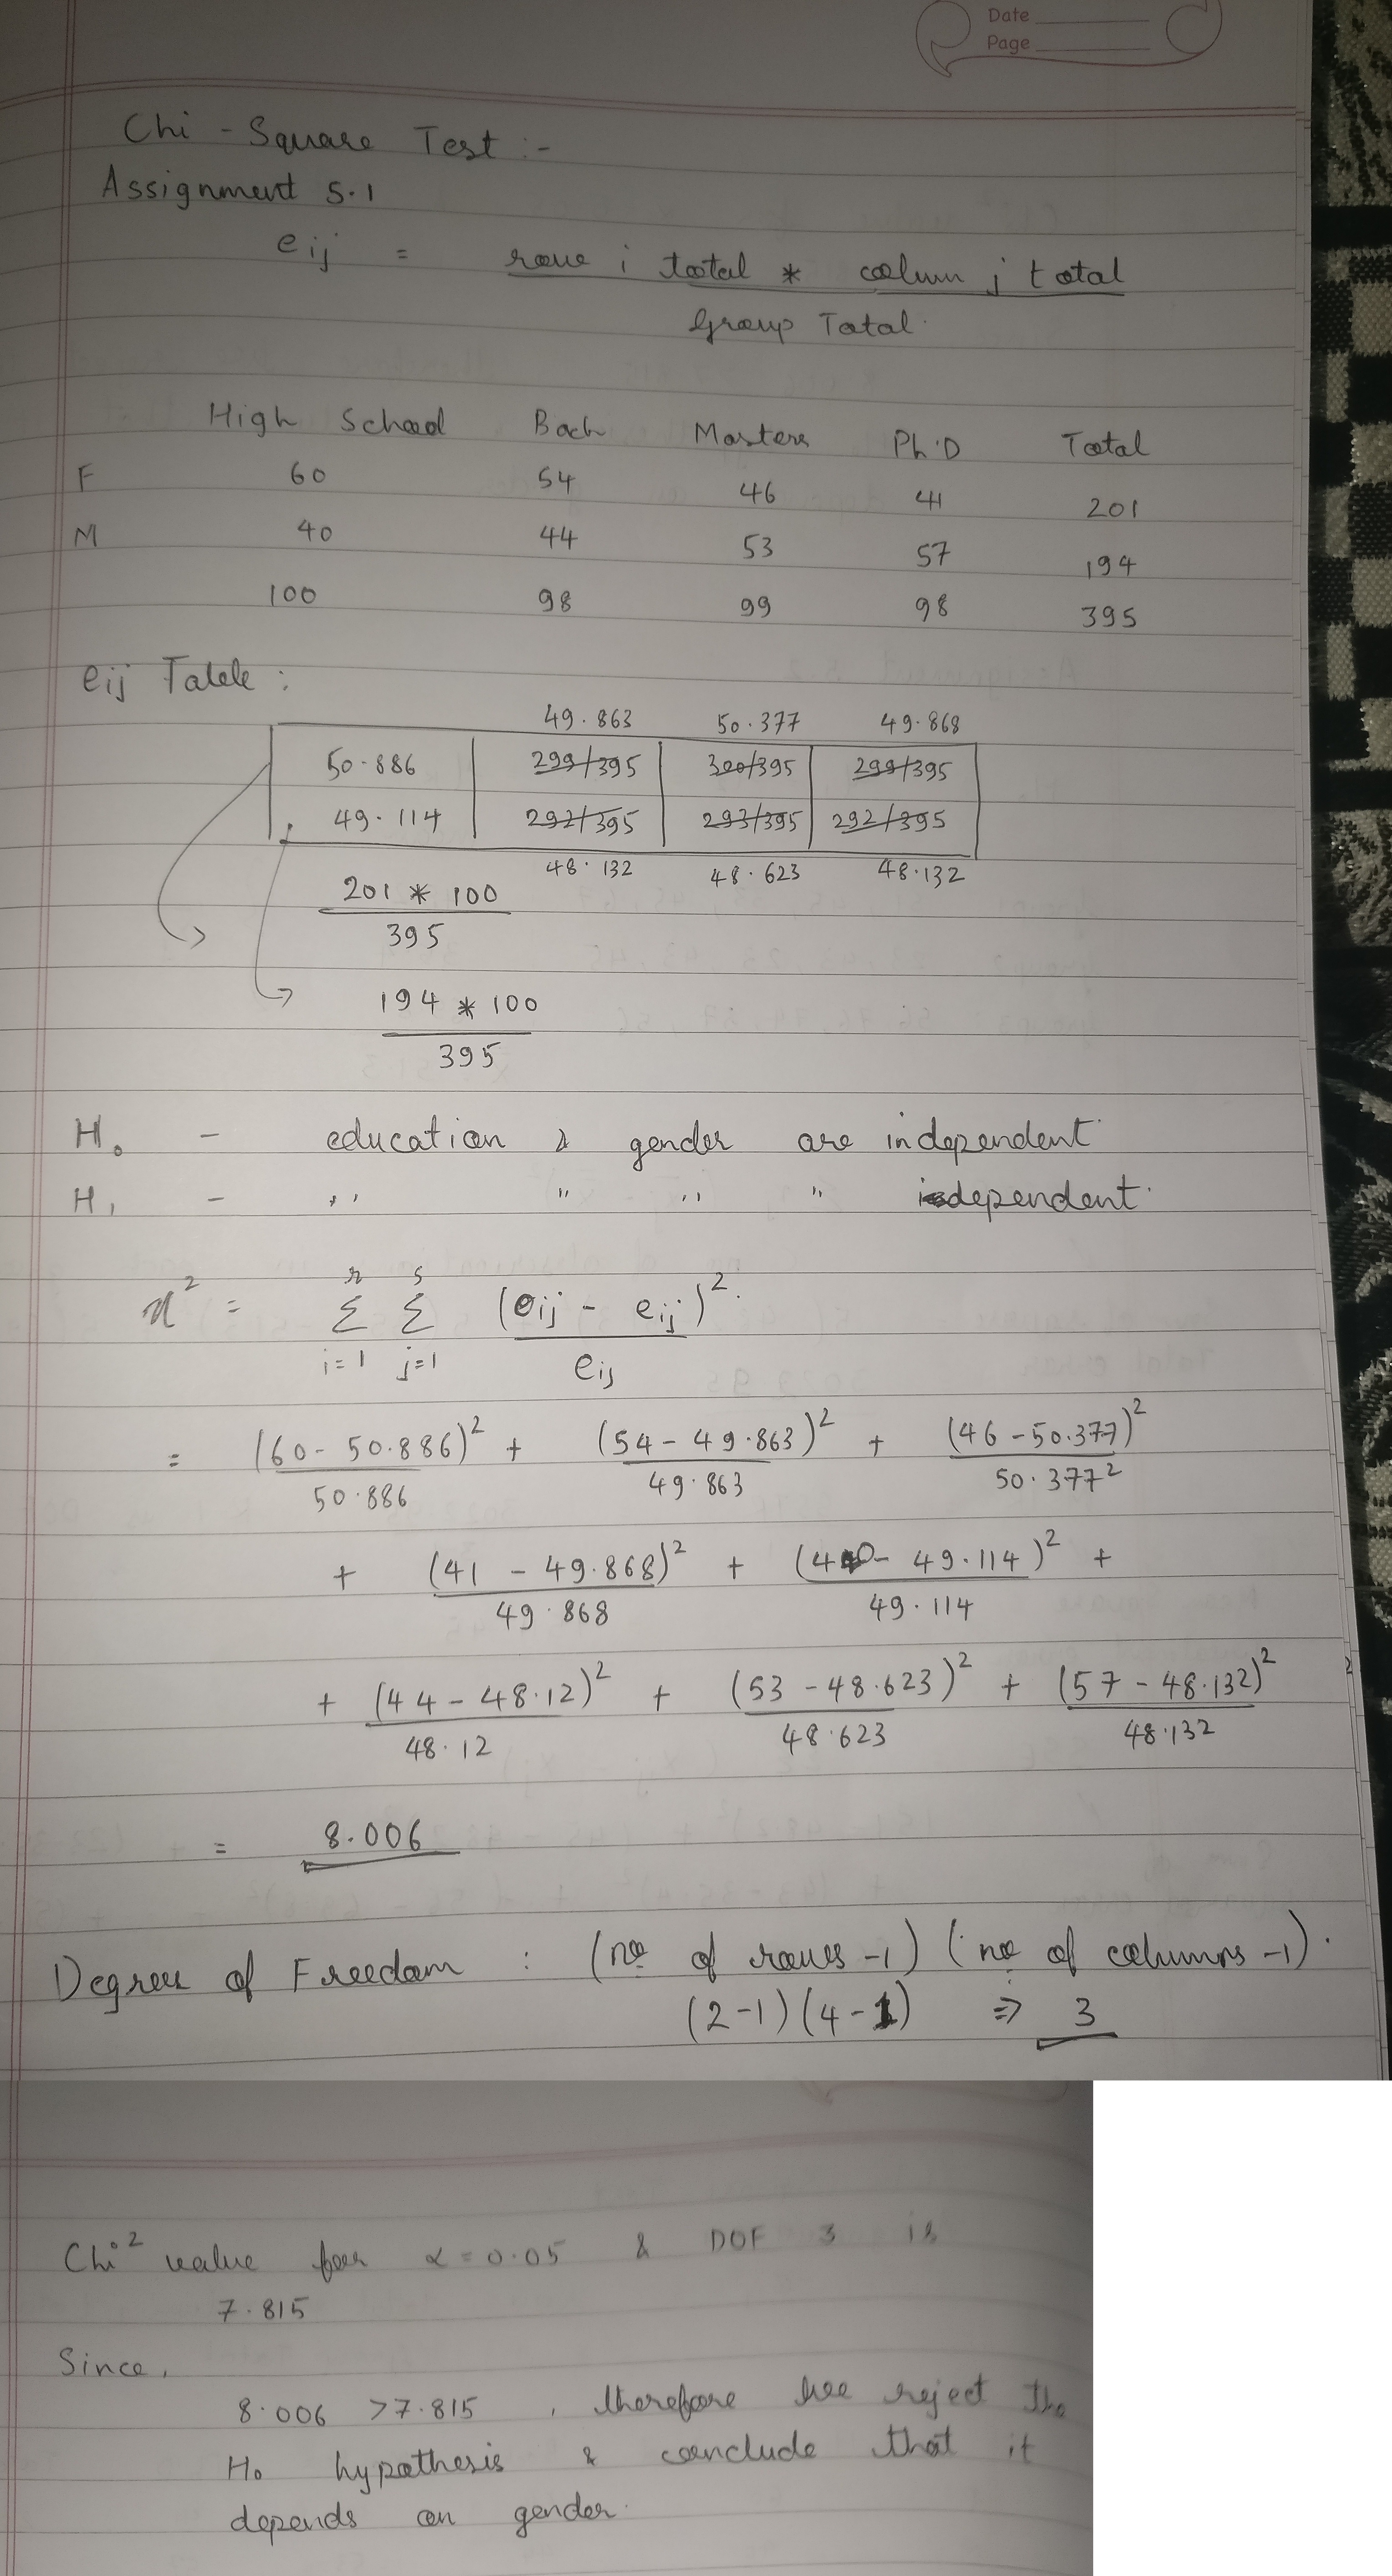 Date
Page
Chi - Square Test :-
Assignment 5.1
eij = row i total * colum j total
Group Total.
High School Bach Masters Ph.D Total
F 60 54 46 41 201
M 40 44 53 57 194
100 98 99 98 395
eij Table :
49.863 50.377 49.868
50.886 299/395 300/395 299/395
49.114 292/395 293/395 292/395
48.132 48.623 48.132
201 * 100
395
194 * 100
395
H0 - education & gender are independent
H1 - " " " " dependent.
x² = r Σ i=1 s Σ j=1 (oij - eij)²
eij
= (60 - 50.886)² + (54 - 49.863)² + (46 - 50.377)²
50.886 49.863 50.377²
+ (41 - 49.868)² + (40 - 49.114)² +
49.868 49.114
+ (44 - 48.12)² + (53 - 48.623)² + (57 - 48.132)²
48.12 48.623 48.132
= 8.006
Degree of Freedom : (no of rows -1) (no of columns -1).
(2-1) (4-1) => 3
Chi² value for α = 0.05 & DOF 3 is
7.815
Since,
8.006 > 7.815 , therefore we reject the
H0 hypothesis & conclude that it
depends on gender.